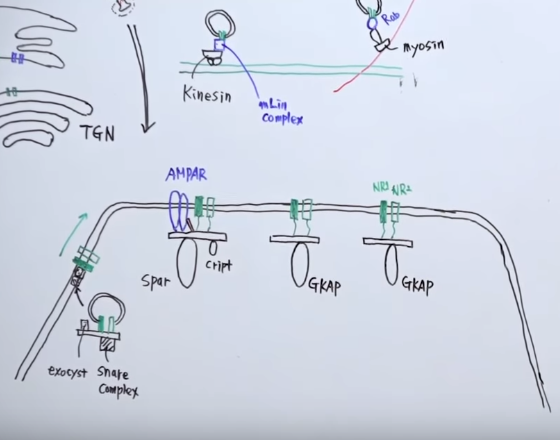 Rab
myosin
Kinesin
mLin
complex
TGN
AMPAR
NR1 NR2
Spar
Cript
GKAP
GKAP
exocyst
Snare
Complex